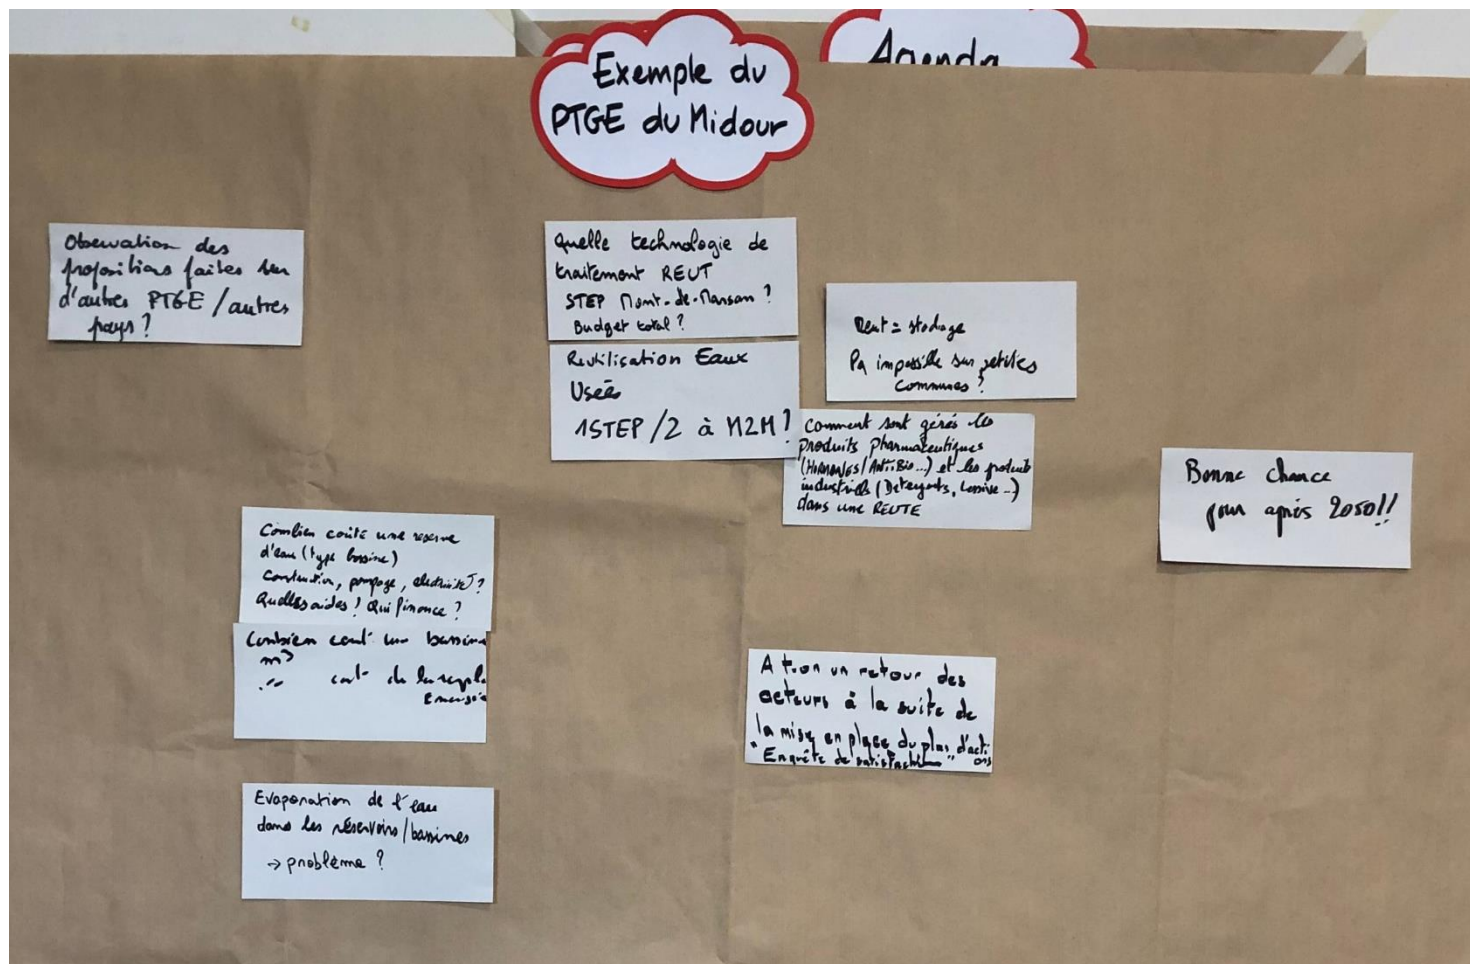 Exemple du
PTGE du Midour
Agenda
Observation des
propositions faites sur
d'autres PTGE / autres
pays ?
Quelle technologie de
traitement REUT
STEP Mont-de-Marsan ?
Budget total ?
Reutilisation Eaux
Usées
1STEP/2 à M2M ?
Reut = stockage
Pa impossible sur petites
communes ?
Comment sont gérés les
produits pharmaceutiques
(Hormones/AntiBio...) et les produits
industriels (Detergents, Lessive...)
dans une REUTE
Bonne chance
pour après 2050!!
Combien coûte une reserve
d'eau (type bassine)
Construction, pompage, électricité ?
Quelles aides ? Qui finance ?
Combien cout un bassine
m3
cout de
Energie
A t-on un retour des
acteurs à la suite de
la mise en place du plan d'actions
"Enquête de satisfaction"
Evaporation de l'eau
dans les réservoirs/bassines
→ problème ?